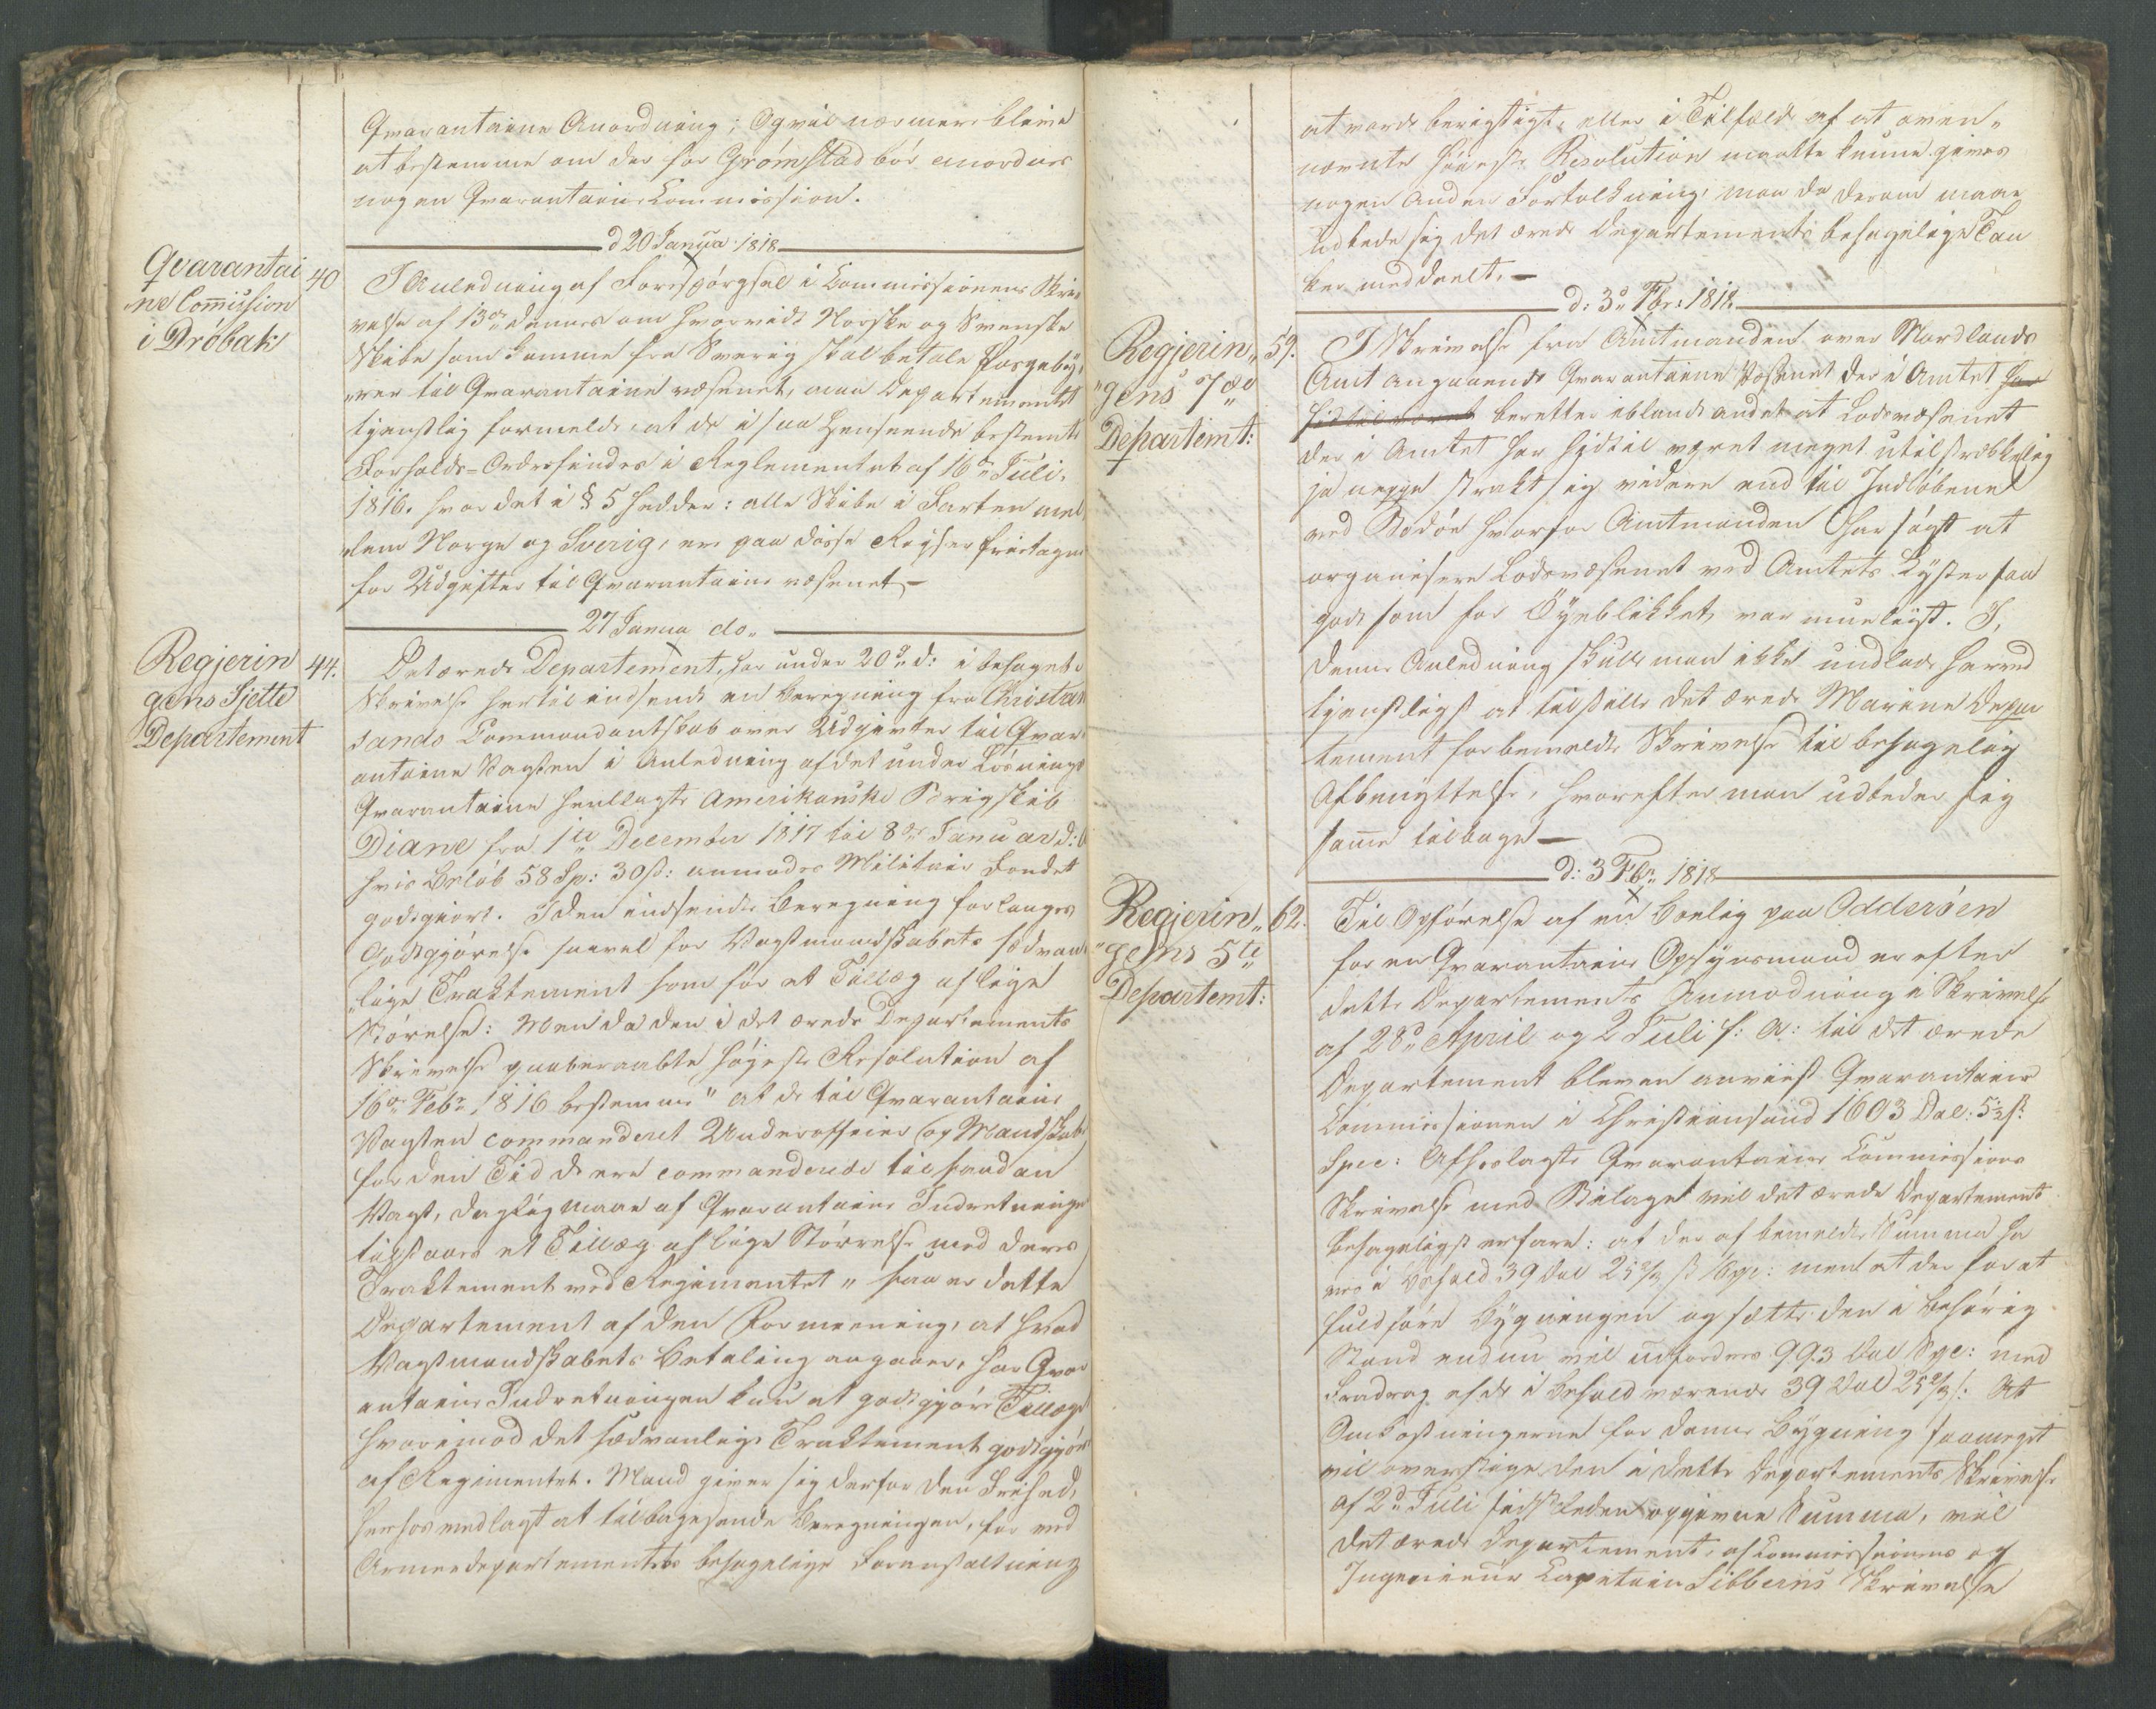 Qvarantaine Anordning; Og vil nærmere blive
at bestemme om der for Grømstad bør anordnes
nogen Qvarantaine Commission.
d 20 Janua 1818
Qvarantai
ne Com̅ission
i Drøbak
40
I Anledning af Forespørgsel i Commissionens Skri
velse af 13de dennes om hvorvidt Norske og Svenske
Skibe som komme fra Sverig skal betale
til Qvarantaine væsenet, maa Departementet
tjenstlig formelde, at de i saa Henseende bestemte
Forholds-Ordres findes i Reglementet af 16de Juli
1816. hvor det i § 5 hedder: alle Skibe i Farten mel
lem Norge og Sverig, er paa disse Reyser fritagne
for Udgifter til Qvarantaine væsenet –
27 Janua do.
Regjerin
gens Sjette
Departement
44.
Det ærede Departement, har under 20de d: i behagelig
Skrivelse hertil indsendt en Beregning fra Christian
sands Commandantskab over Udgivter til Qvar
antaine Vagten i Anledning af det under Løsnings
Qvarantaine henlagte Amerikanske Brigskib
Diane fra 1te December 1817 til 8de Januar d: A
hvis Beløb 58 Sp: 30 ß: anmodes Militair Fondet
godtgiort. I den indsendte Beregning forlanges
Godtgjørelse saavel for Vagtmandskabets sædvan
lige Traktement som for et Tillæg af lige
Størelse: Men da den i det ærede Departements
Skrivelse paaberaabte høyeste Resolution af
16de Febr 1816 bestemmer "at de til Qvarantaine
Vagten commanderet Underofficier og Mandskab
for den Tid de ere commanderede til saadan
Vagt, daglig maae af Qvarantaine Indretningen
tilstaaes et Tillæg af lige Størrelse med deres
Traktement ved Regimentet" saa er dette
Departement af den Formeening, at hvad
Vagtmandskabets Betaling angaaer, har Qvar
antaine Indretningen kun at godtgjøre Tillæget
hvorimod det sædvanlige Traktement godtgjøres
af Regimentet. Mand giver sig derfor den Frihed,
herhos medlagt at tilbagesende Beregningen, for ved
Armeedepartementets behagelige Foranstaltning
at vorde berigtiget, eller i Tilfælde af at oven„
nævnte høieste Resolution maatte kunne gives
nogen anden Fortolkning, maa da derom maae
udbede sig det ærede Departements behagelige Tan
ker meddeelt. –
d: 3de Fbr: 1818
Regjerin„
„gens 7de
Departemt:
59.
I Skrivelse fra Amtmanden over Nordlands
Amt angaaende Qvarantaine Væsenet der i Amtet har
hidtil været beretter iblandt andet at Lodsvæsenet
der i Amtet har hidtil været meget utilstrækkelig
ja neppe strakt sig videre end til Indløbene
ved Bodøe hvorfor Amtmanden har søgt at
organisere Lodsvæsenet ved Amtets Kyster saa
godt som for Øyeblikket var mueligst. I
denne Anledning skulle man ikke undlade herved
tjenstligst at tilstille det ærede Marine Depar
tement forbemeldte Skrivelse til behagelig
Afbenyttelse, hvorefter man udbeder sig
sam̅e tilbage –
d: 3 Fbr 1818
Regjerin„
„gens 5te
Departemt:
62.
Til Opførelse af en Boelig paa Odderøen
for en Qvarantaine Opsynsmand er efter
dette Departements Anmodning i Skrivelse
af 28de April og 2 Juli f: A: til det ærede
Departement bleven anviist Qvarantaine
Commissionen i Christiansand 1603 Dal: 5½ ß
Spec: Afhoslagte Qvarantaine Commissions
Skrivelse med Bilaget vil det ærede Departement
behageligst erfare: at der af bemeldte Summa ha
ves i Behold 39 Dal 25 2/3 ß Spe: men at der for at
fuldføre Bygningen og sætte den i behørig
Stand endnu vil udfordres 993 Dal Spe: med
Fradrag af de i Behold værende 39 Dal 25 2/3 ß. At
Omkostningerne for denne Bygning saameget
vil overstige den i dette Departements Skrivelse
af 2d Juli sidstleden opgivne Summa, vil
det ærede Departement, af Commissionens og
Ingenieur Capitain Sibberns Skrivelse